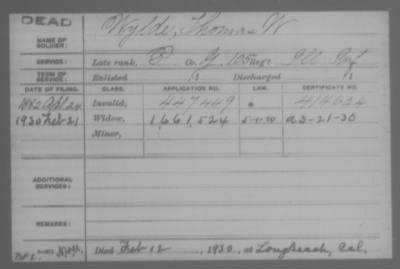 DEAD
NAME OF SOLDIER: Wylde, Thomas W
SERVICE: Late rank, P Co. G, 105 Regt Ill Inf
TERM OF SERVICE: Enlisted 1 Discharged 1
DATE OF FILING. CLASS. APPLICATION NO. LAW. CERTIFICATE NO.
1882 Apl 24 Invalid, 447449 414624
1930 Feb 21 Widow, 1,661,524 5-1-20 a3-21-30
Minor,
ADDITIONAL SERVICES:
REMARKS:
Died Feb 12, 1930, at Longbeach, Cal.